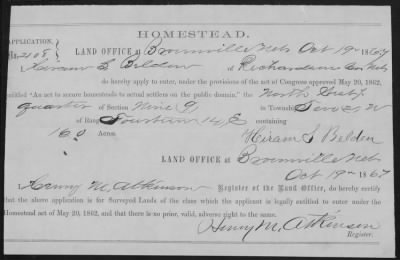 HOMESTEAD.
APPLICATION,
No. 2108
LAND OFFICE at Brownville Neb Oct 19th 1867
Hiram S Belden of Richardson Co Neb
do hereby apply to enter, under the provisions of the act of Congress approved May 20, 1862,
entitled "An act to secure homesteads to actual settlers on the public domain," the North
quarter of Section Nine 9 in Township
of Range Fourteen 14 E containing
160 Acres.
Hiram S Belden
LAND OFFICE at Brownville Neb
Oct 19th 1867
I Henry M. Atkinson Register of the Land Office, do hereby certify
that the above application is for Surveyed Lands of the class which the applicant is legally entitled to enter under the
Homestead act of May 20, 1862, and that there is no prior, valid, adverse right to the same.
Henry M. Atkinson
Register.